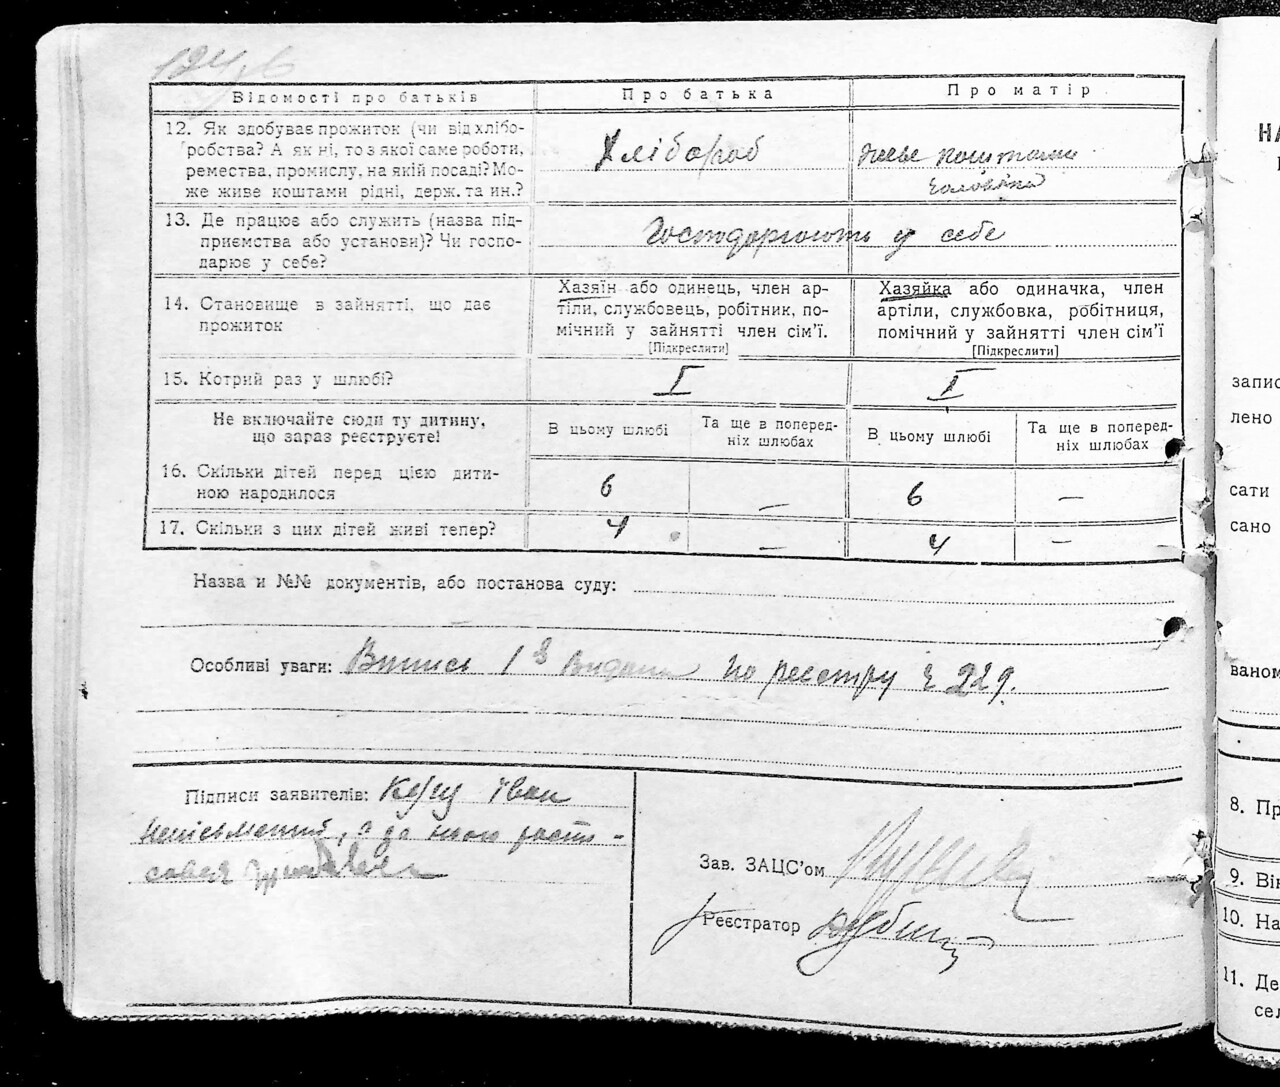 Відомості про батьків
Про батька
Про матір
12. Як здобуває прожиток (чи від хлібо-
робства? А як ні, то з якої саме роботи,
ремества, промислу, на якій посаді? Мо-
же живе коштами рідні, держ. та ин.?
Хлібороб
коштами
чоловіка
13. Де працює або служить (назва під-
приємства або установи)? Чи госпо-
дарює у себе?
Господарюють у себе
14. Становище в зайнятті, що дає
прожиток
Хазяїн або одинець, член ар-
тіли, службовець, робітник, по-
мічний у зайнятті член сім’ї.
[Підкреслити]
Хазяйка або одиначка, член
артіли, службовка, робітниця,
помічний у зайнятті член сім’ї
[Підкреслити]
15. Котрий раз у шлюбі?
I
I
Не включайте сюди ту дитину,
що зараз реєструєте!
В цьому шлюбі
Та ще в поперед-
ніх шлюбах
В цьому шлюбі
Та ще в поперед-
ніх шлюбах
16. Скільки дітей перед цією дити-
ною народилося
6
—
6
—
17. Скільки з цих дітей живі тепер?
4
—
4
—
Назва и №№ документів, або постанова суду:
Особливі уваги: Випись по реєстру 229.
Підписи заявителів: Іван
неписьменний, а за нього розпи-
сався
Зав. ЗАЦС’ом
Реєстратор
НА
запис
лено
сати
сано
ваном
8. Пр
9. Вік
10. На
11. Де
сел